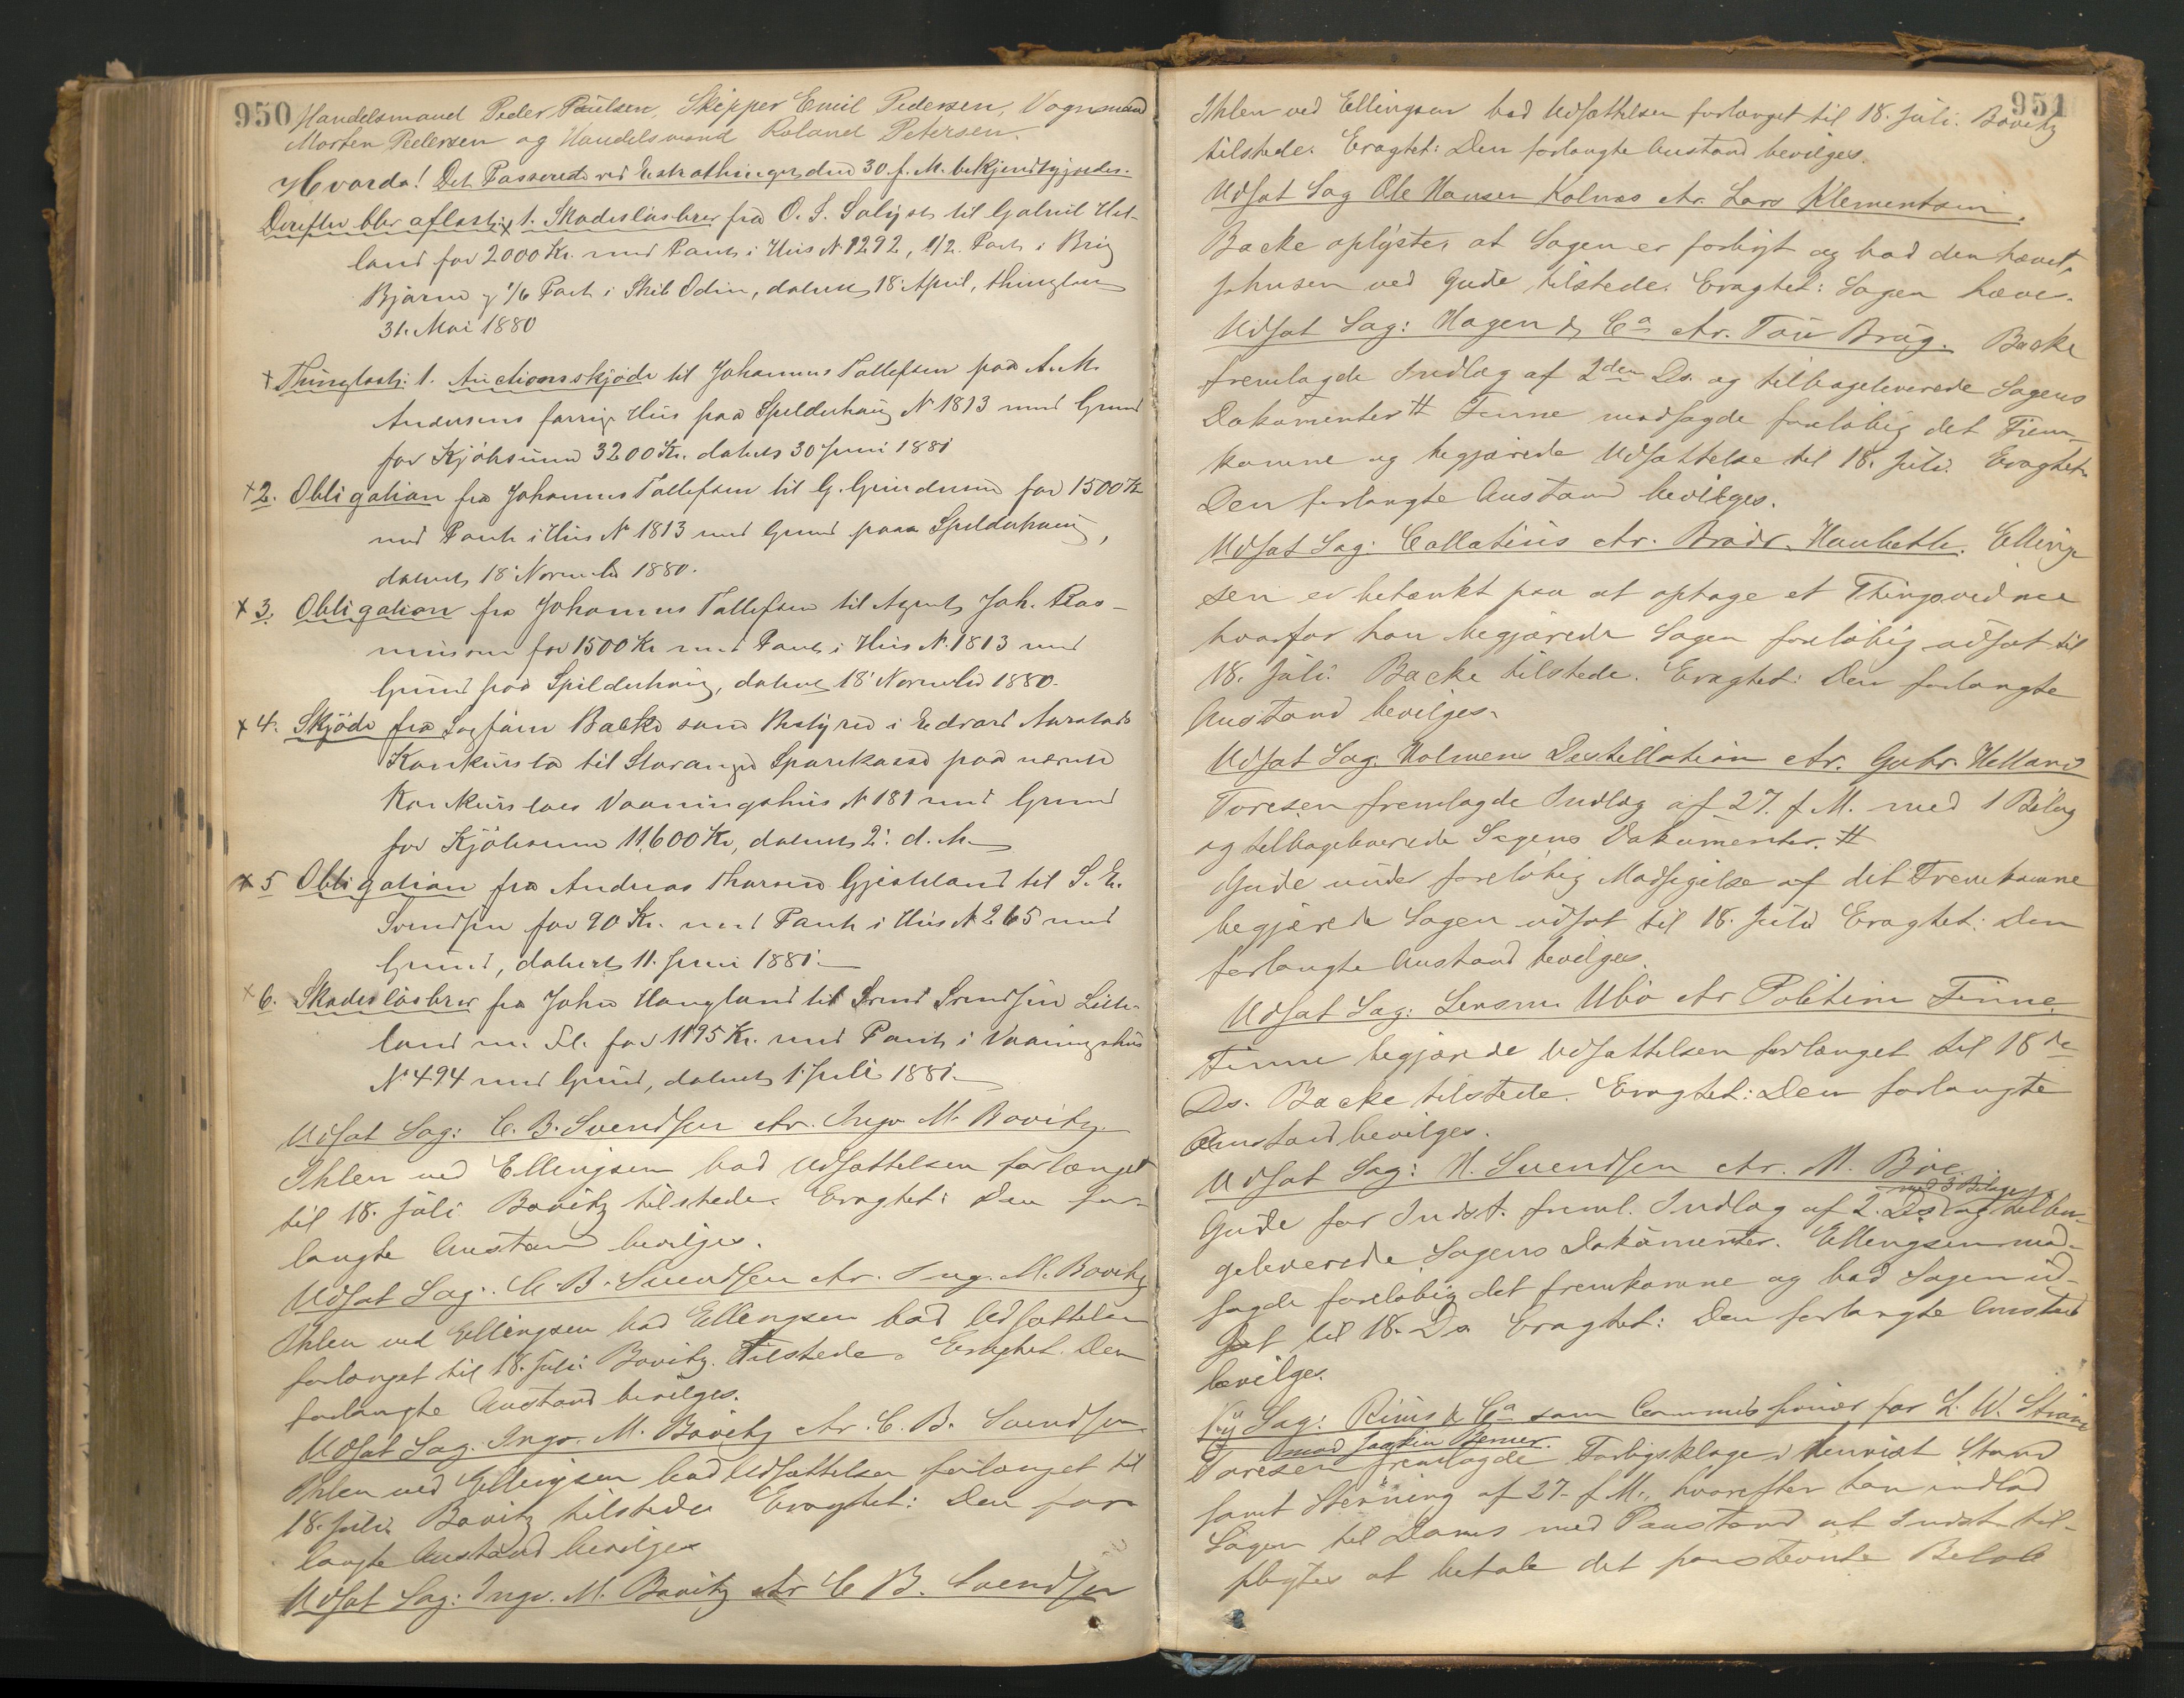 950 Handelsmand Peder Paulsen, Skipper Emil Pedersen, Vognmand
Morten Pedersen og Handelsmand Roland Petersen.
Hvorda! Det Passerede ved Extrathinget den 30. f. M. bekjendtgjordes.
Derefter blev aflæst: x 1. Skadesløsbrev fra O. S. til Gabriel Hel-
land for 2000 Kr. med Pant i Hus N. 1292, 1/2 Part i Brig
Bjarne og 1/6 Part i Skib Odin, dateret 18. April, thinglæst
31. Mai 1880
+ Thinglæst: 1. Auctionsskjøde til Johannes Tallefsen paa A. M.
Andersens forrige Hus paa Spilderhaug N. 1813 med Grund
for Kjøbesum 3200 Kr. dateret 30 Juni 1881
+ 2. Obligation fra Johannes Tallefsen til G. Grindeum for 1500 Kr
med Pant i Hus N. 1813 med Grund paaa Spilderhaug,
dateret 18' November 1880.
x 3. Obligation fra Johannes Tallefsen til Agent Joh. Ras-
mussen for 1500 Kr med Pant i Hus N. 1813 med
Grund paa Spilderhaug, dateret 18' November 1880.
x 4. Skjøde fra Sagfører Backe som Bestyrer i Edvard
Konkursbo til Stavanger Sparekasse paa nævnte
Konkursboes Vaaningshus N 181 med Grund
for Kjøbesum 11,600 Kr, dateret 2' d. M.
x 5 Obligation fra Andreas Thorsen Gjesteland til S. E.
Svendsen for 90 Kr. med Pant i Hus N 265 med
Grund, dateret 11. Juni 1881.
x 6. Skadesløsbrev fra John Haugland til Svend Svendsen
land m. Fl. for 1195 Kr. med Pant i Vaaningshus
N. 494 med Grund, dateret 1. Juli 1881.
Udsat Sag: C. B. Svendsen ctr. Ingv. M. Bovitz.
Ihlen ved Ellingsen bad Udsættelsen forlænget
til 18. Juli. Bovitz tilstede. Eragtet: Den for-
langte Anstand bevilges.
Udsat Sag: C. B. Svendsen ctr. Ing. M. Bovitz
Ihlen ved Ellingsen bad Ellingsen bad Udsættelsen
forlænget til 18. Juli. Bovitz. Tilstede. Eragtet. Den
forlangte Anstand bevilges.
Udsat Sag. Ingv. M. Bovitz ctr. C. B. Svendsen
Ihlen ved Ellingsen bad Udsættelsen forlænget til
18. Juli. Bovitz tilstede. Eragtet: Den for-
langte Anstand bevilges
Udsat Sag: Ingv. M. Bovitz ctr C B. Svendsen
951
Ihlen ved Ellingsen bad Udsættelsen forlænget til 18. Juli. Bovitz
tilstede. Eragtet: Den forlangte Anstand bevilges.
Udsat Sag Ole Hansen Kolnæs ctr. Lars Klementsen.
Backe oplyste, at Sagen er forligt og bad den hævet,
Johnsen ved Gude tilstede. Eragtet: Sagen hæves.
Udsat Sag: Hagen & Ca ctr. Tau Brug. Backe
fremlagde Indlæg af 2den Ds. og tilbageleverede Sagens
Dokumenter # Finne modsagde foreløbig det Frem-
komne og begjærede Udsættelse til 18. Juli. Eragtet
Den forlangte Anstand bevilges.
Udsat Sag: Collatius ctr. Brødr. Haabeth. Elling-
sen er betænkt paa at optage et Thingsvidne
hvorfor han begjærede Sagen foreløbig udsat til
18. Juli. Backe tilstede. Eragtet: Den forlangte
Anstand bevilges.
Udsat Sag. Holmens Destillation ctr. Gabr. Helland
Toresen fremlagde Indlæg af 27. f. M. med 1 Bilag
og tilbageleverede Sagens Dokumenter. #
Gude under foreløbig Modsigelse af det Fremkomne
begjærede Sagen udsat til 18. Juli Eragtet: Den
forlangte Anstand bevilges.
Udsat Sag: Lensm. Ubø ctr Politim Finne.
Finne begjærede Udsættelsen forlænget til 18de
Ds. Backe tilstede. Eragtet: Den forlangte
Anstand bevilges.
Udsat Sag: H. Svendsen ctr. M. Bøe.
med 3 Bilage
Gude for Indst. freml. Indlæg af 2. Ds. og tilba-
geleverede Sagens Dokumenter. Ellingsen mod-
sagde foreløbig det fremkomne og bad Sagen ud-
sat til 18. Ds. Eragtet: Den forlangte Anstand
bevilges.
Ny Sag: Rius & Ca som Commissionær for L. W.
mod Sagfører Berner.
Toresen fremlagde Forligsklage i henvist Stand
samt Stevning af 27. f. M., hvorefter han indlod
Sagen til Doms med Paastand at Indst. til-
pligtes at betale det paastevnte Beløb